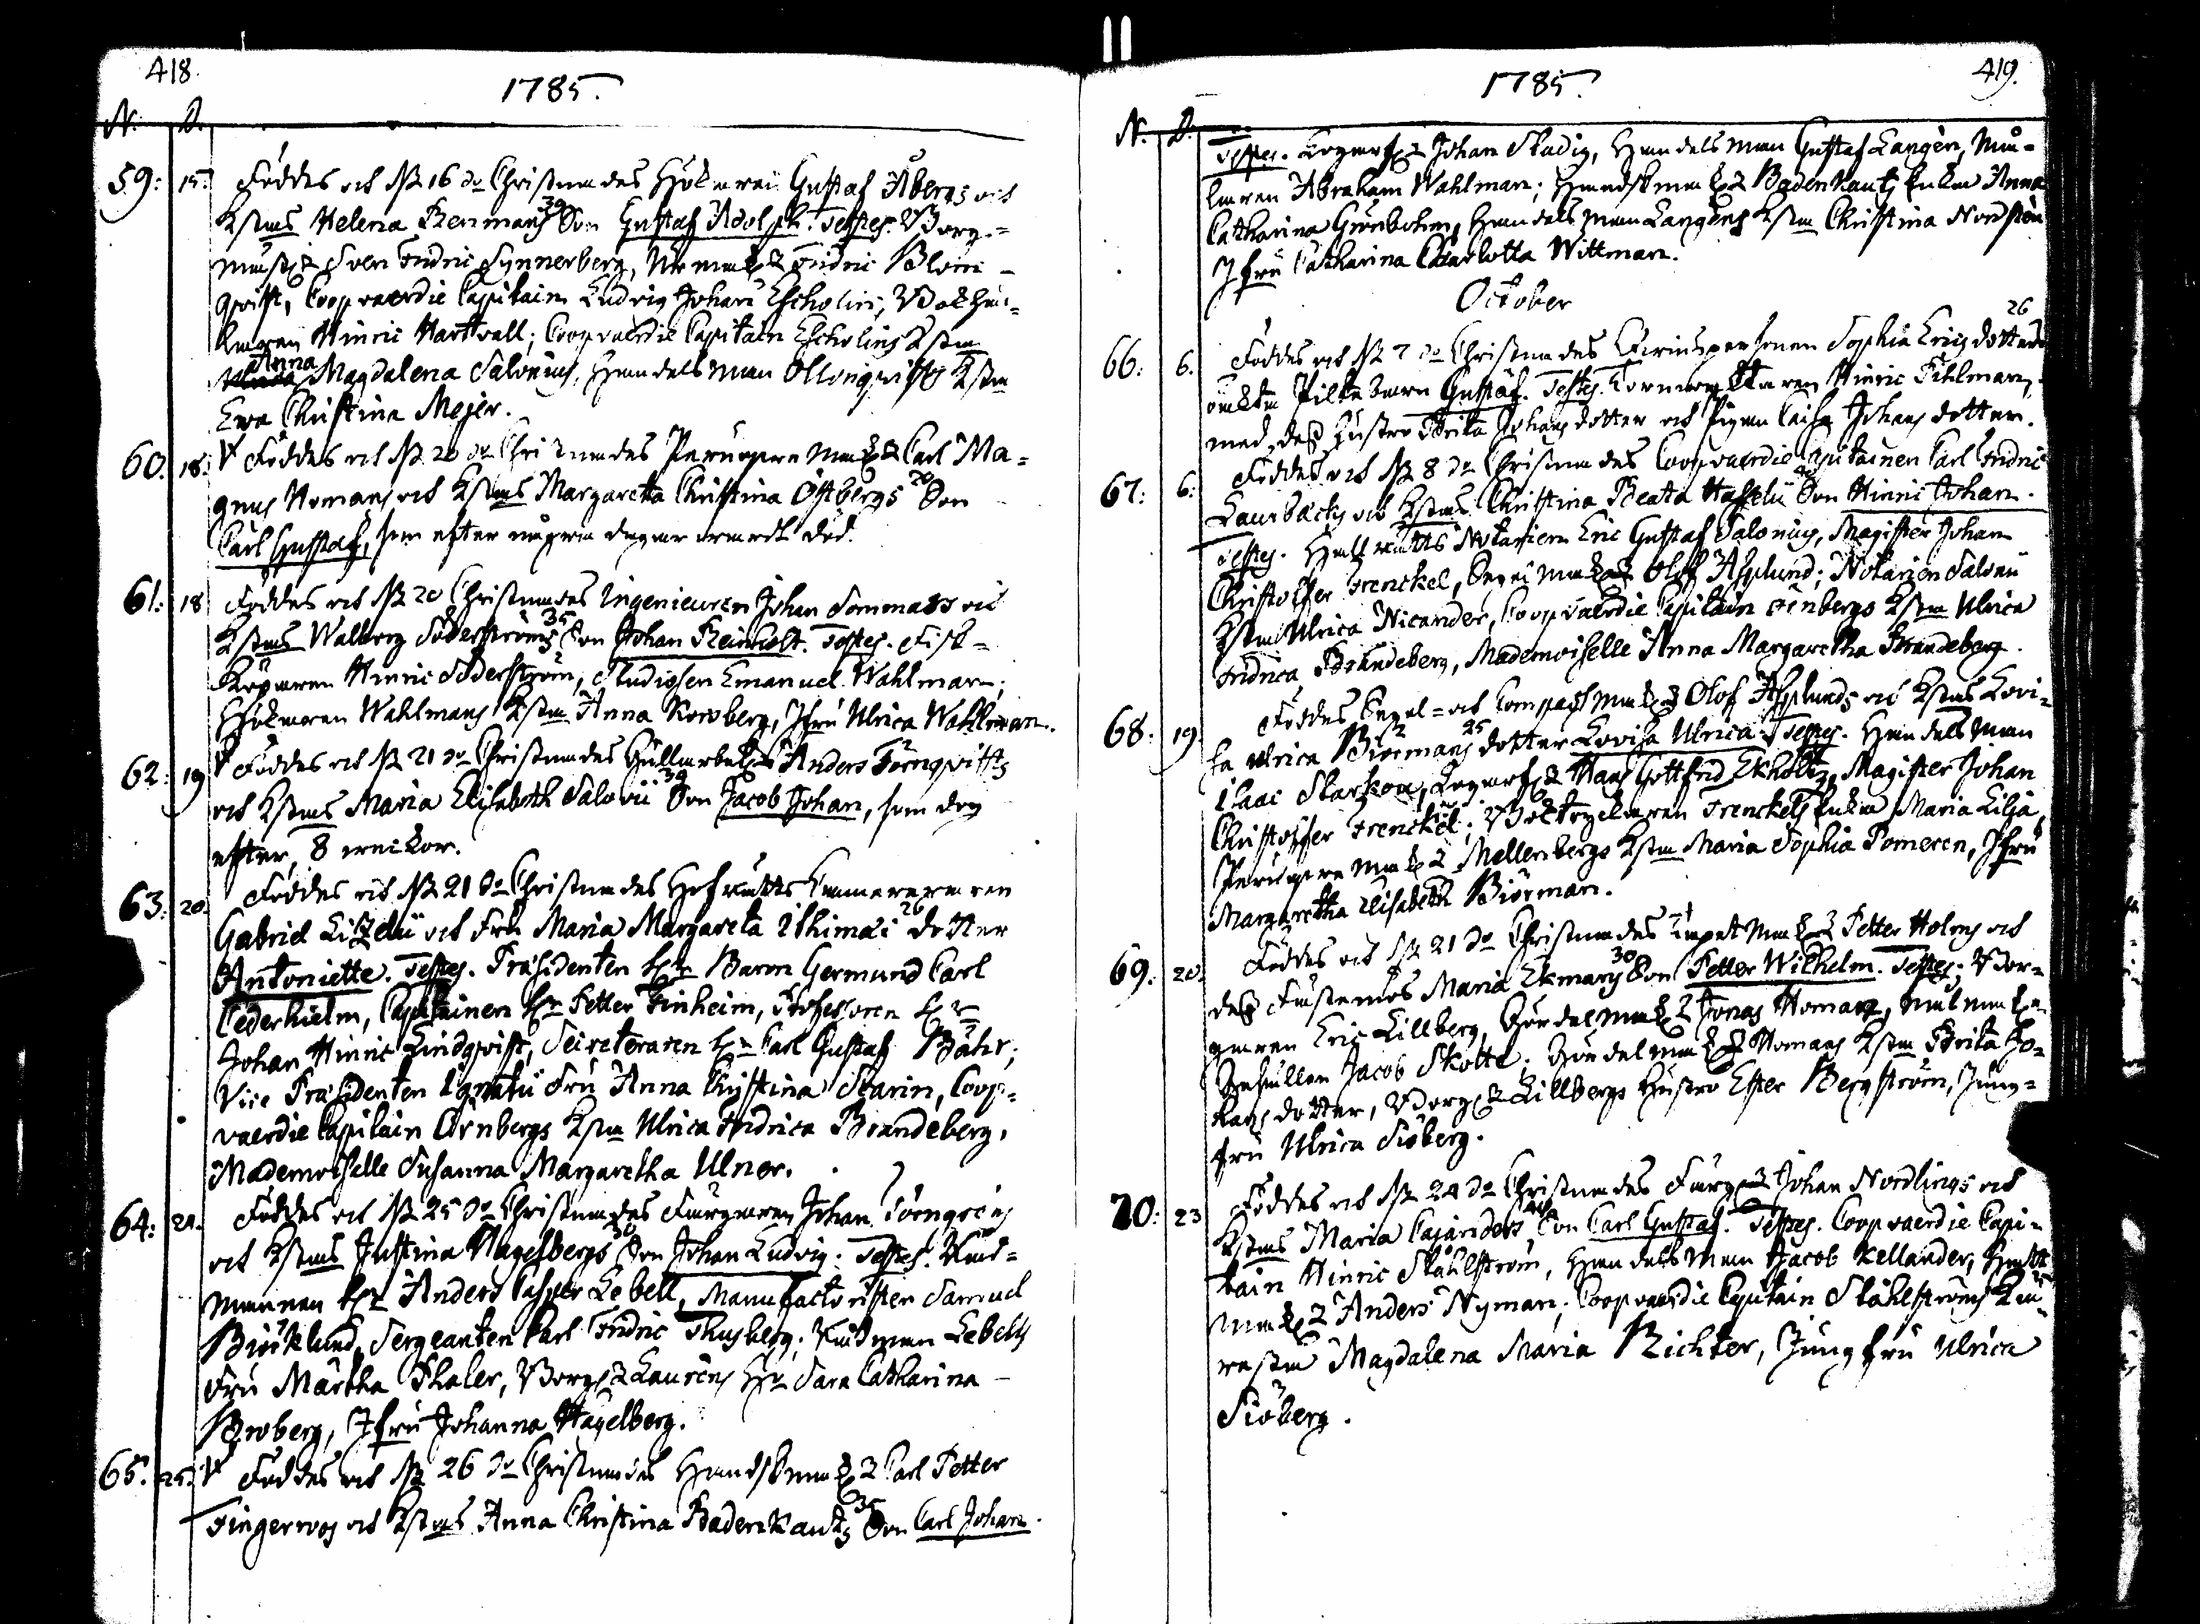 418.
1785.
N: D.
59: 15. Föddes och d. 16 do Christnades Hökaren Gustaf Åbergs och
H:stros Helena Renmans 30 Son Gustaf Adolph. Testes. Borg-
mäst: Sven Fridric Synnerberg, Fridric Blom-
qvist, Coopvaerdie Capitain Ludvig Johan Escholin, Bokhål-
laren Hinric Hartwall; Coopvaerdie Capitain Escholins H:stru
Anna
Magdalena Salonius, Handelsman Ollonqvists H:stru
Ewa Christina Mejer.
60. 18. Föddes och d. 20 do Christnades Peruquemak: Carl Ma-
gnus Homans och H:stros Margaretha Christina Östbergs 20 Son
Carl Gustaf, som efter några dagar war död.
61: 18 Föddes och d. 20 Christnades Ingenieuren Johan Sommars och
H:stros Walborg Söderströms 35 Son Johan Reinholt. Testes. Fisk-
köparen Hinric Söderström, Studiosen Emanuel Wahlman;
Hökaren Wahlmans H:stru Anna Rosberg, Jfru Ulrica Wahlman.
62: 19 Föddes och d. 21 do Christnades Anders Törnqvists
och H:stros Maria Elisabeth Salovii 30 Son Jacob Johan, som dog
efter 8 weckor.
63: 20. Föddes och d. 21 do Christnades Hofrätts Kamereraren
Gabriel Lizelii och Fru Maria Margareta Ithimæi 26 dotter
Antoniette. Testes. Præsidenten H:r Baron Germund Carl
Cederhielm, Capitainen H:r Petter Finheim, Professoren H:r
Johan Hinric Lindqvist, Secreteraren H:r Carl Gustaf Bähr;
Vice Præsidenten Ignatii Fru Anna Christina Starin, Coop-
vaerdie Capitain Örnbergs H:stru Ulrica Fridrica Brandeberg,
Mademoiselle Susanna Margaretha Ulner.
64: 24. Föddes och d. 25 do Christnades Färgaren Johan Törngrens
och H:stros Justina Hagelbergs 30 Son Johan Ludvig. Testes. Råd-
mannen H:r Anders Casper Lebell, Manufactoristen Samuel
Biörklund, Sergeanten Carl Fridric Thusberg; Rådman Lebells
Fru Märtha Thaler, Borg: Laurens H:stru Sara Catharina
Broberg, Jfru Johanna Hagelberg.
65. 25. Föddes och d. 26 do Christnades Handskmak: Carl Petter
Fingerroos och H:stros Anna Christina Badenkautz 35 Son Carl Johan.
419.
1785.
N. D.
Testes. Johan Stadig, Handelsman Gustaf Langén, Må-
laren Abraham Wahlman; Handskmak: Badenkautz Enka Anna
Catharina Grönbohm, Handelsman Langens H:stru Christina Nordsten
Jfru Catharina Charlotta Wittman.
October
66: 6. Föddes och d. 7 do Christnades Qvinspersonen Sophia Ericsdotters 26
oäkta Pilte barn Gustaf. Testes. Hinric Pihlman,
med dess Hustro Brita Johansdotter och Pigan Caisa Johansdotter.
67: 6: Föddes och d. 8 do Christnades Coopvaerdie Capitainen Carl Fridric
Laurbäcks och H:stros Christina Beata Hasselii 40 Son Hinric Johan.
Testes. Hofrätts Notarien Eric Gustaf Salonius, Magister Johan
Christopher Frenckel, Segelmak: Olof Asplund; Notarien Salonii
H:stru Ulrica Nicander, Coopvaerdie Capitain Örnbergs H:stru Ulrica
Fridrica Brandeberg, Mademoiselle Anna Margaretha Brandeberg.
68: 19 Föddes Segel- och Compassmak: Olof Asplunds och H:stros Lovi-
sa Ulrica Biörmans 25 dotter Lovisa Ulrica. Testes. Handelsman
Isaac Starkou, Hans Gottfrid Ekholtz, Magister Johan
Christopher Frenckel; Boktryckaren Frenckels Enka Maria Lilja,
Peruquemak: Mellenbergs H:stru Maria Sophia Pomeren, Jfru
Margaretha Elisabeth Biörman.
69: 20. Föddes och d. 21 do Christnades Petter Holms och
dess Hustros Maria Ekmans 30 Son Petter Wilhelm. Testes; Bor-
garen Eric Lillberg, Gördelmak: Jonas Homan,
Gesällen Jacob Skotte; Gördelmak: Homans H:stru Brita Jo-
hansdotter, Borg: Lillbergs Hustro Ester Bergström, Jung-
fru Ulrica Siöberg.
70: 23 Föddes och d. 24 do Christnades Johan Nordlings och
H:stros Maria Cajanders 40 Son Carl Gustaf. Testes. Coopvaerdie Capi-
tain Hinric Ståhlström, Handelsman Jacob Kellander,
Anders Nyman; Coopvaerdie Capitain Ståhlströms Kä-
resta Magdalena Maria Richter, Jungfru Ulrica
Siöberg.